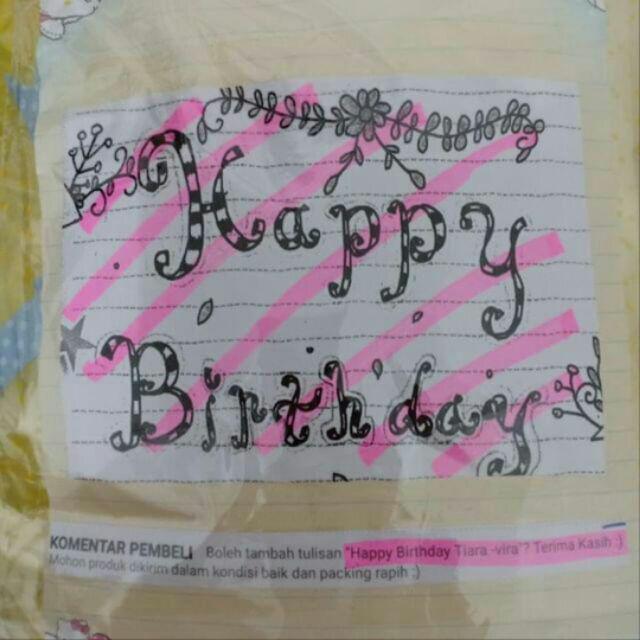 Happy
Birthday
KOMENTAR PEMBELI Boleh tambah tulisan "Happy Birthday Tiara -vira"? Terima Kasih :)
Mohon produk dikirim dalam kondisi baik dan packing rapih :)